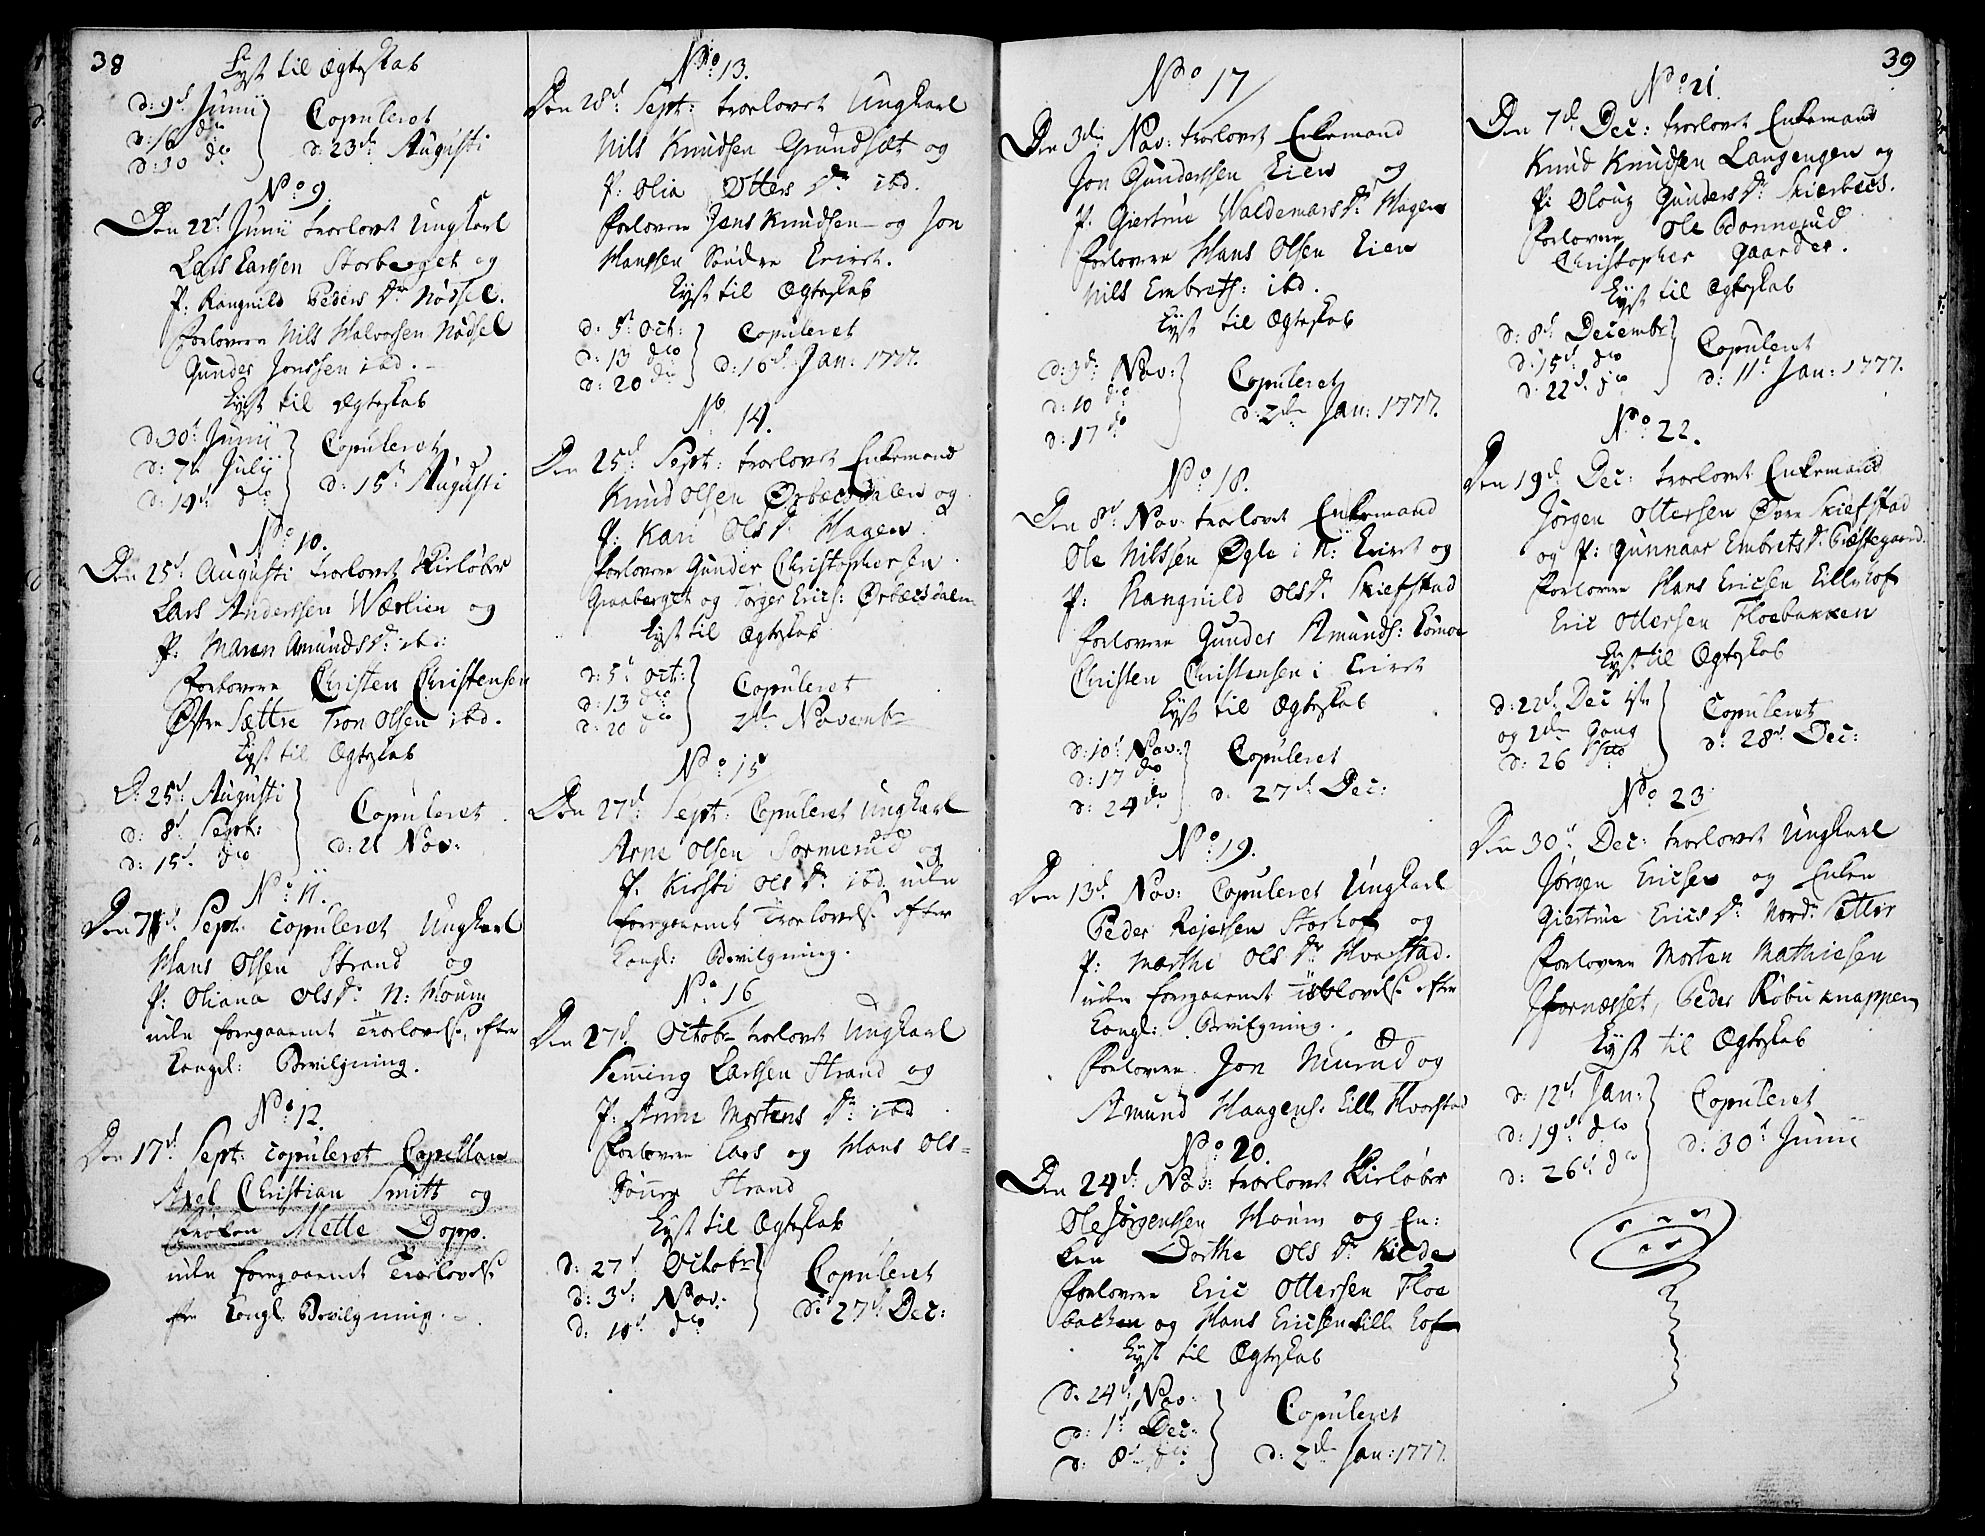 38
Lyst til Ægteskab
d: 9de Junii
d: 16 dito
d: 10 dito
Copuleret
d: 23de Augusti
No 9.
Den 22de Junii trorlovet Ungkarl
Lars Larssen Storberget og
P: Rangnild Peders Dr Nødsel.
Forlovere Nils Halvorsen Nødsel
Gunder Jonssen ibd.
Lyst til Ægteskab
d: 30te Junii
d: 7de Julii
d: 14de dito
Copuleret
d: 15de Augusti
No 10.
Den 25de Augusti trorlovet Skirløber
Lars Anderssen Wærlien og
P: Maren Amunds Dr ibd:
Forlovere Christen Christensen
Østre Sættre Tron Olsen ibd.
Lyst til Ægteskab
d: 25de Augusti
d: 8de Sept:
d: 15de dito
Copuleret
d: 21 Nov:
No 11.
Den 7de Sept: copuleret Ungkarl
Hans Olsen Strand og
P: Oliana Ols Dr N: Moum
uden foregaaende Trorlovelse, efter
Kongel: Bevilgning.
No 12.
Den 17de Sept: copuleret Capellan
Axel Christian Smitt og
Frøken Mette Dopp.
uden foregaaende Trorlovelse
efter Kongl. Bevilgning.
No 13.
Den 28de Sept: trorlovet Ungkarl
Nils Knudsen Grundsæt og
P: Olia Otters Dr ibd.
Forlovere Jens Knudsen og Jon
Hanssen Søndre
Lyst til Ægteskab
d: 5te Oct:
d: 13 dito
d: 20 dito
Copuleret
d: 16de Jan: 1777.
No 14.
Den 25de Sept: trorlovet Enkemand
Knud Olsen Ørbecsdalen og
P: Kari Ols Dr Hagen
Forlovere Gunder Christophersen
Graaberget og Torger Erics: Ørbecsdalen
Lyst til Ægteskab
d: 5te Oct:
d: 13 dito
d: 20 dito
Copuleret
2den Novembr
No 15
Den 27de Sept: Copuleret Ungkarl
Arne Olsen Sormerud og
P. Kirsti Ols Dr ibd uden
foregaaende Trorlovelse efter
Kongl: Bevilgning.
No 16
Den 27de Octobr trorlovet Ungkarl
Seming Larssen Strand og
P: Anne Mortens Dr ibd
Forlovere Lars og Hans Ols-
Sønner Strand
Lyst til Ægteskab
d: 27de Octobr
d: 3de Nov:
d: 10de dito
Copuleret
d: 27de Dec:
No 17
Den 3die Nov: trorlovet Enkemand
Jon Gunderssen Eien og
P. Giertrue Waldemars Dr Hagen
Forlovere Hans Olsen Eien
Nils Embrets: ibd.
Lyst til Ægteskab
d: 3die Nov:
d: 10 dito
d: 17 dito
Copuleret
d: 2den Jan: 1777.
No 18.
Den 8de Nov. trorlovet Enkemand
Ole Nilssen Øgle i N: og
P: Rangnild Ols Dr Skiefstad
Forlovere Gunder Amunds: Lømoe
Christen Christensen i
Lyst til Ægteskab
d: 10de Nov:
d: 17 dito
d: 24 dito
Copuleret
d. 27de Dec:
No 19.
Den 13de Nov: Copuleret Ungkarl
Peder Rejersen Storhof og
P: Marthe Ols Dr Hvorstad.
uden foregaaende Trorlovelse efter
Kongl: Bevilgning.
Forlovere Jon Murud og
Amund Haagens: Lille Hvorstad
No 20.
Den 24de Nov: trorlovet Skirløber
Ole Jørgenssen Moum og En:
ken Dorthe Ols Dr Kilde
Forlovere Eric Ottersen Floe
backen og Hans Ericsen Lille Hof
Lyst til Ægteskab
d. 24de Nov:
d: 1te Dec:
d: 8de dito
Copuleret
d: 2den Jan: 1777.
39
No 21.
Den 7de Dec: trorlovet Enkemand
Knud Knudsen Langengen og
P: Oloug Gunders Dr Skierbecs.
Forlovere Ole Bonnerud
Christopher Gaarder.
Lyst til Ægteskab
d: 8de Decembr
d: 15de dito
d: 22de dito
Copuleret
d: 11te Jan: 1777.
No 22.
Den 19de Dec: trorlovet Enkemand
Jørgen Ottersen Øvre Skiefstad
og P: Gunnaar Embrets Dr Præstegaard.
Forlovere Hans Ericsen Lille Hof
Eric Ottersen Floebakken
Lyst til Ægteskab
d: 22de Dec 1ste
og 2den Gang
d: 26
Copuleret
d: 28de Dec:
No 23
Den 30te Dec: trorlovet Ungkarl
Jørgen Ericsen og Enken
Giertrue Erics Dr Nord: Sætter
Forlovere Morten Mathiesen
Jfornæsset, Peder Robu knappen
Lyst til Ægteskab
d: 12te Jan:
d: 19de dito
d: 26de dito
Copuleret
d: 30te Junii